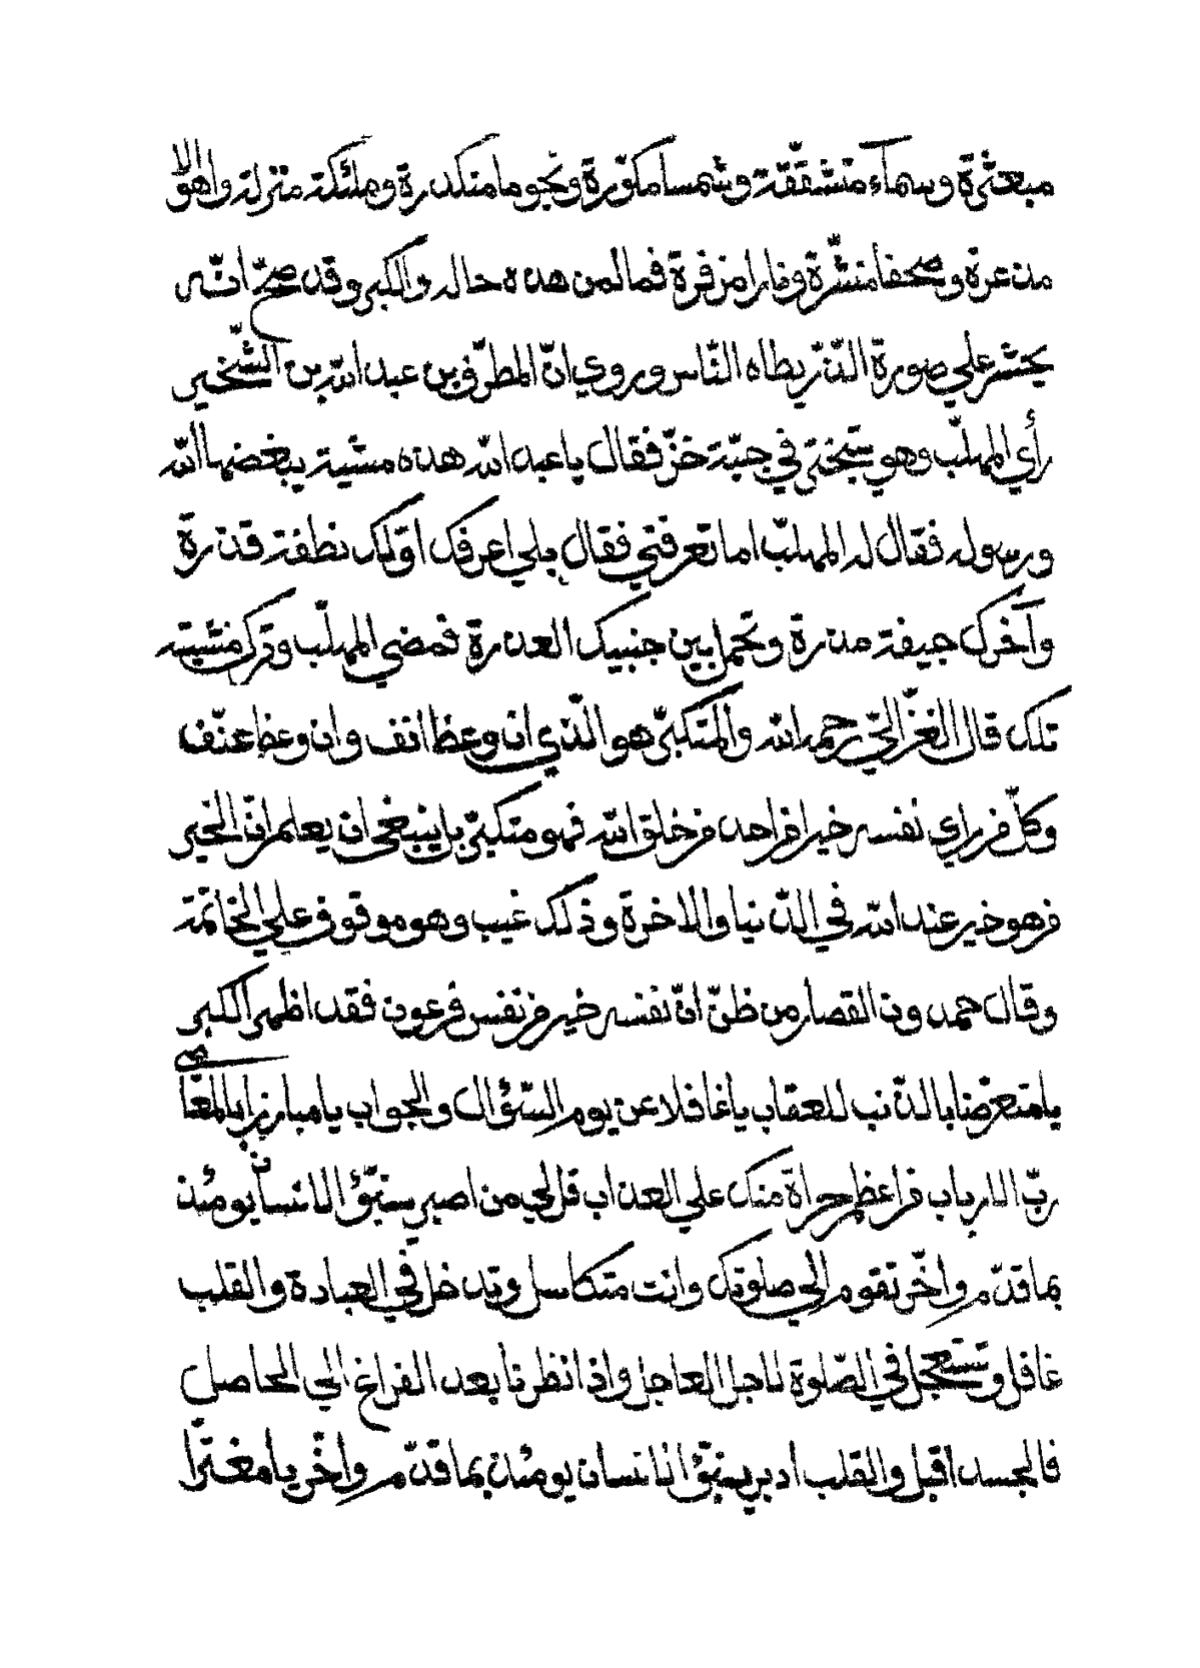 مبعثرة وسماء متشققة وشمسا مكورة ونجوما منكدرة وملئكة منزلة واهوالا
مذعرة وصحفا منشرة ونارا مزفرة فما لمن هذه حاله والكبر وقد صح انه
يحشر على صورة الذر يطاه الناس وروي ان المطرف بن عبد الله بن الشخير
رأي المهلب وهو يتبختر في جبة خز فقال يا عبد الله هذه مشية يبغضها الله
ورسوله فقال له المهلب اما تعرفني فقال بلي اعرفك اولك نطفة قذرة
وآخرك جيفة مذرة وتحمل بين جنبيك العذرة فمضي المهلب وترك مشيته
تلك قال الغزالي رحمه الله والمتكبر هو الذي ان وعظ انف وان وعظ عنف
وكل من راي نفسه خيرا من احد من خلق الله فهو متكبر بل ينبغي ان يعلم ان الخير
من هو خير عند الله في الدنيا والاخرة وذلك غيب وهو موقوف علي الخاتمة
وقال حمدون القصار من ظن ان نفسه خير من نفس فرعون فقد اظهر الكبر
يا متعرضا بالذنب للعقاب يا غافلا عن يوم السئوال والجواب يا مبارزا بالمعاصي
رب الارباب من اعظم جراة منك علي العذاب قل لي من اصبر ينبؤ الانسان يومئذ
بما قدم واخر تقوم الي صلوتك وانت متكاسل وتدخل في العبادة والقلب
غافل وتستعجل في الصلوة لاجل العاجل واذا نظرنا بعد الفراغ الي الحاصل
فالجسد اقبل والقلب ادبر ينبؤ الانسان يومئذ بما قدم واخر يا مغترا